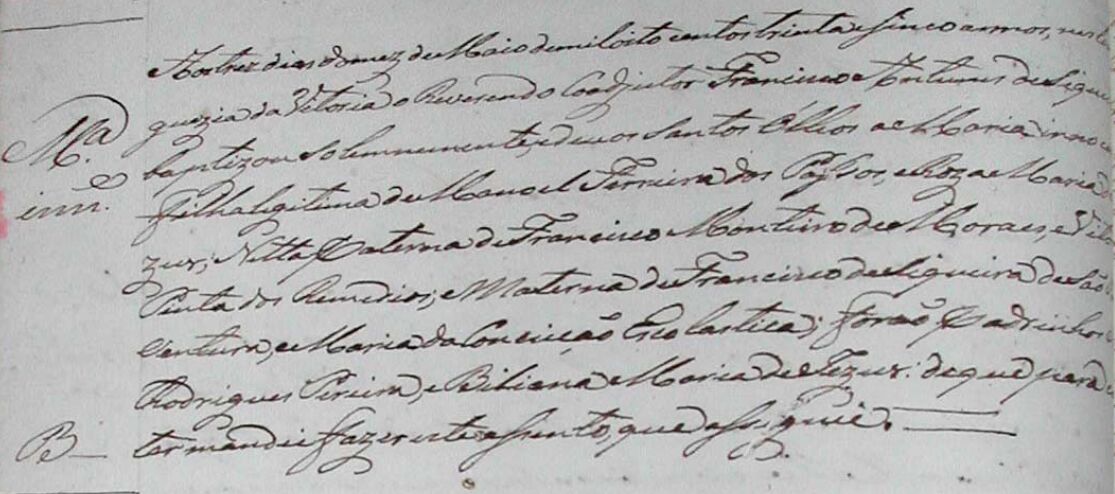 Aos trez dias do mez de Maio de mil oito centos trinta e sinco annos, nesta
M.ª
guezia da Vitoria o Reverendo Coadjutor Francisco Antunes de Sique
baptizou solemnemente, e deu os Santos Olleos a Maria inno
inn.e
filha legitima de Manoel Ferreira dos Passos, e Roza Maria
zus; Netta Paterna de Francisco Monteiro de Moraes, e
Pinta dos Remedios; e Materna de Francisco de Siqueira de São
Ventura, e Maria da Conceição Escolastica; forão Padrinhos
Rodrigues Pereira, e Biliana Maria de Jezus: de que para
B
tar mandei fazer este assento, que assignei.